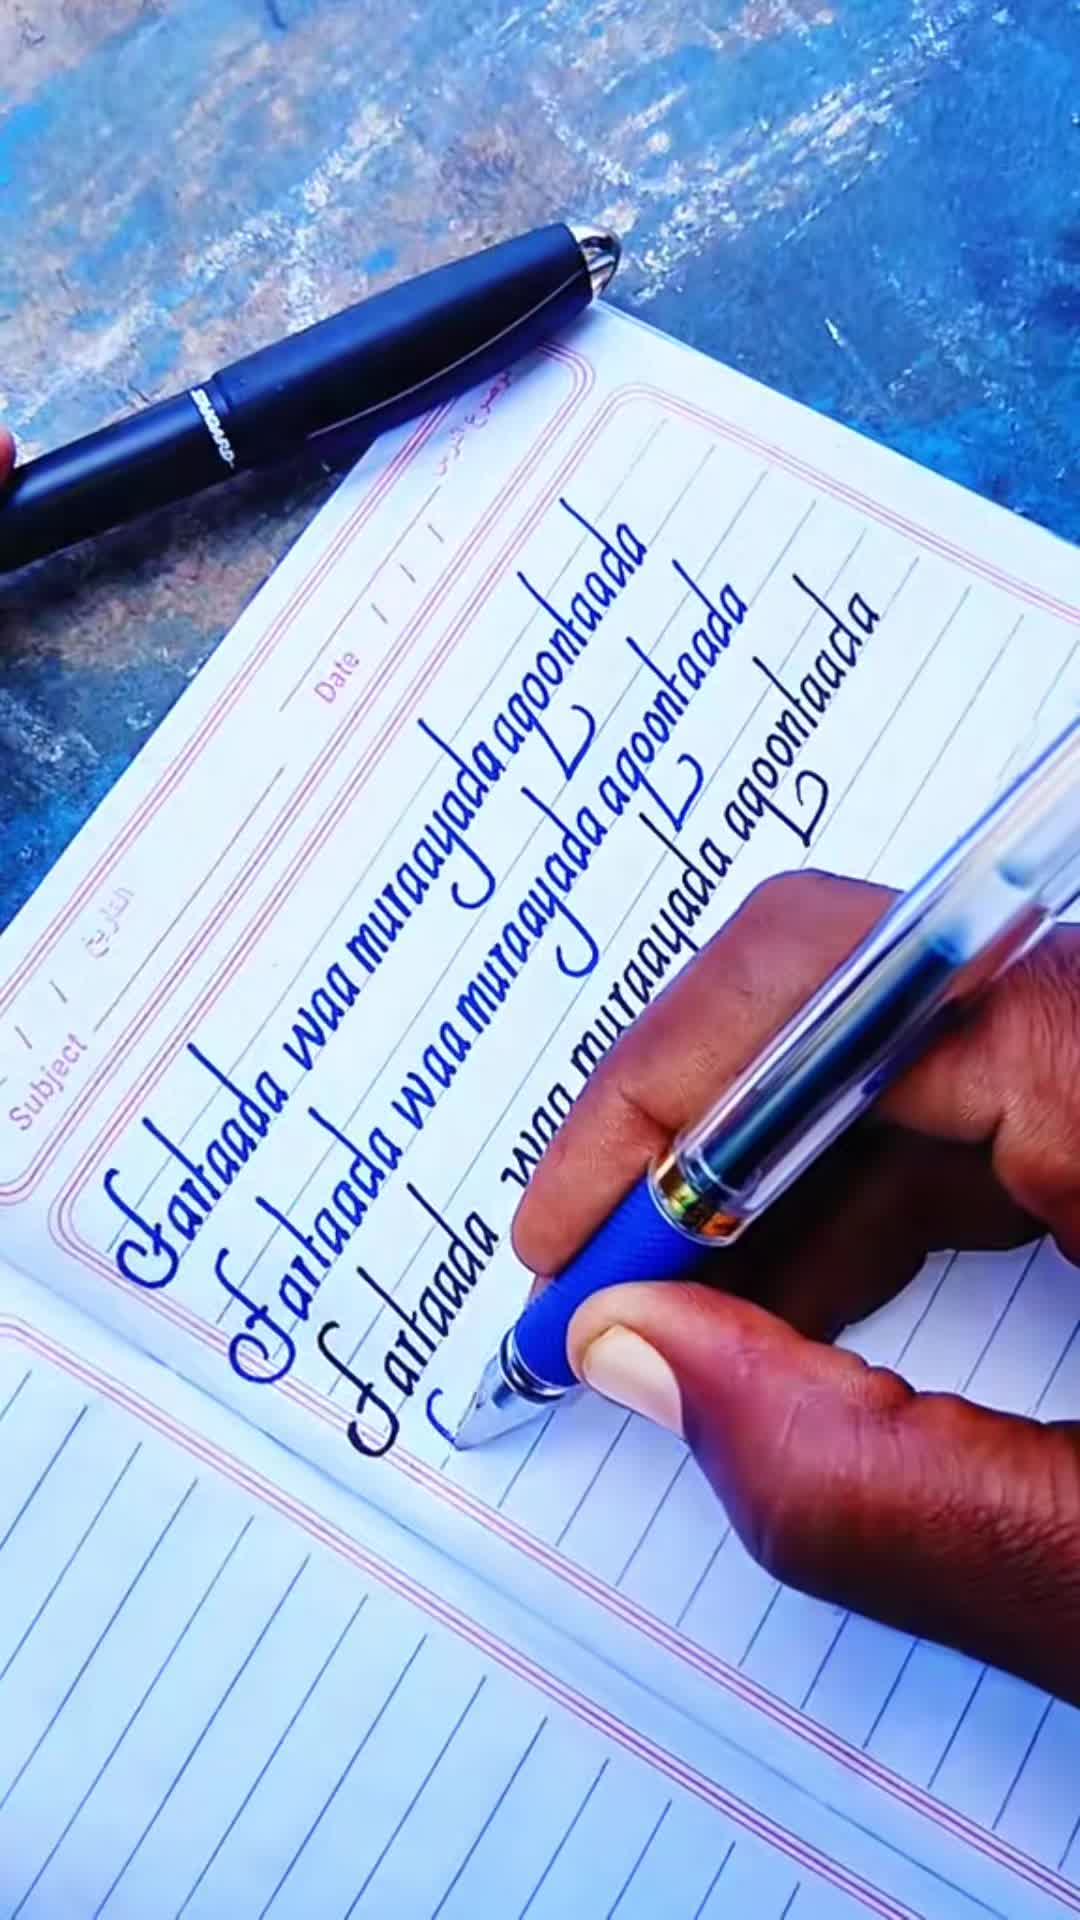 Fartaada waa muraayada aqoontaada
Fartaada waa muraayada aqoontaada
Fartaada waa muraayada aqoontaada
Date / / /
Subject
التاريخ / /